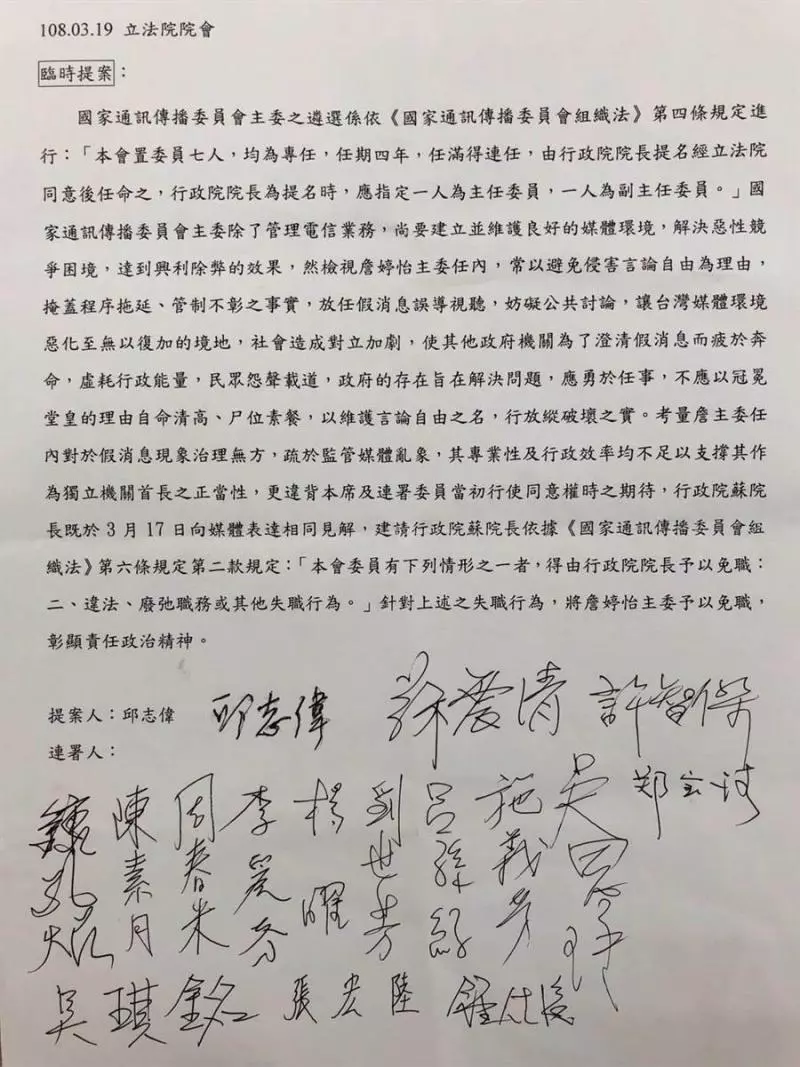 108.03.19 立法院院會
臨時提案：
國家通訊傳播委員會主委之遴選係依《國家通訊傳播委員會組織法》第四條規定進
行：「本會置委員七人，均為專任，任期四年，任滿得連任，由行政院院長提名經立法院
同意後任命之，行政院院長為提名時，應指定一人為主任委員，一人為副主任委員。」國
家通訊傳播委員會主委除了管理電信業務，尚要建立並維護良好的媒體環境，解決惡性競
爭困境，達到興利除弊的效果，然檢視詹婷怡主委任內，常以避免侵害言論自由為理由，
掩蓋程序拖延、管制不彰之事實，放任假消息誤導視聽，妨礙公共討論，讓台灣媒體環境
惡化至無以復加的境地，社會造成對立加劇，使其他政府機關為了澄清假消息而疲於奔
命，虛耗行政能量，民眾怨聲載道，政府的存在旨在解決問題，應勇於任事，不應以冠冕
堂皇的理由自命清高、尸位素餐，以維護言論自由之名，行放縱破壞之實。考量詹主委任
內對於假消息現象治理無方，疏於監管媒體亂象，其專業性及行政效率均不足以支撐其作
為獨立機關首長之正當性，更違背本席及連署委員當初行使同意權時之期待，行政院蘇院
長既於 3 月 17 日向媒體表達相同見解，建請行政院蘇院長依據《國家通訊傳播委員會組
織法》第六條規定第二款規定：「本會委員有下列情形之一者，得由行政院院長予以免職：
二、違法、廢弛職務或其他失職行為。」針對上述之失職行為，將詹婷怡主委予以免職，
彰顯責任政治精神。
提案人：邱志偉 邱志偉 蘇愛清 許智傑
連署人：
鄭宝清
陳素月
周春米
李麗芬
楊曜
劉世芳
呂孫綾
施義芳
吳琪銘 張宏陸 鍾佳濱